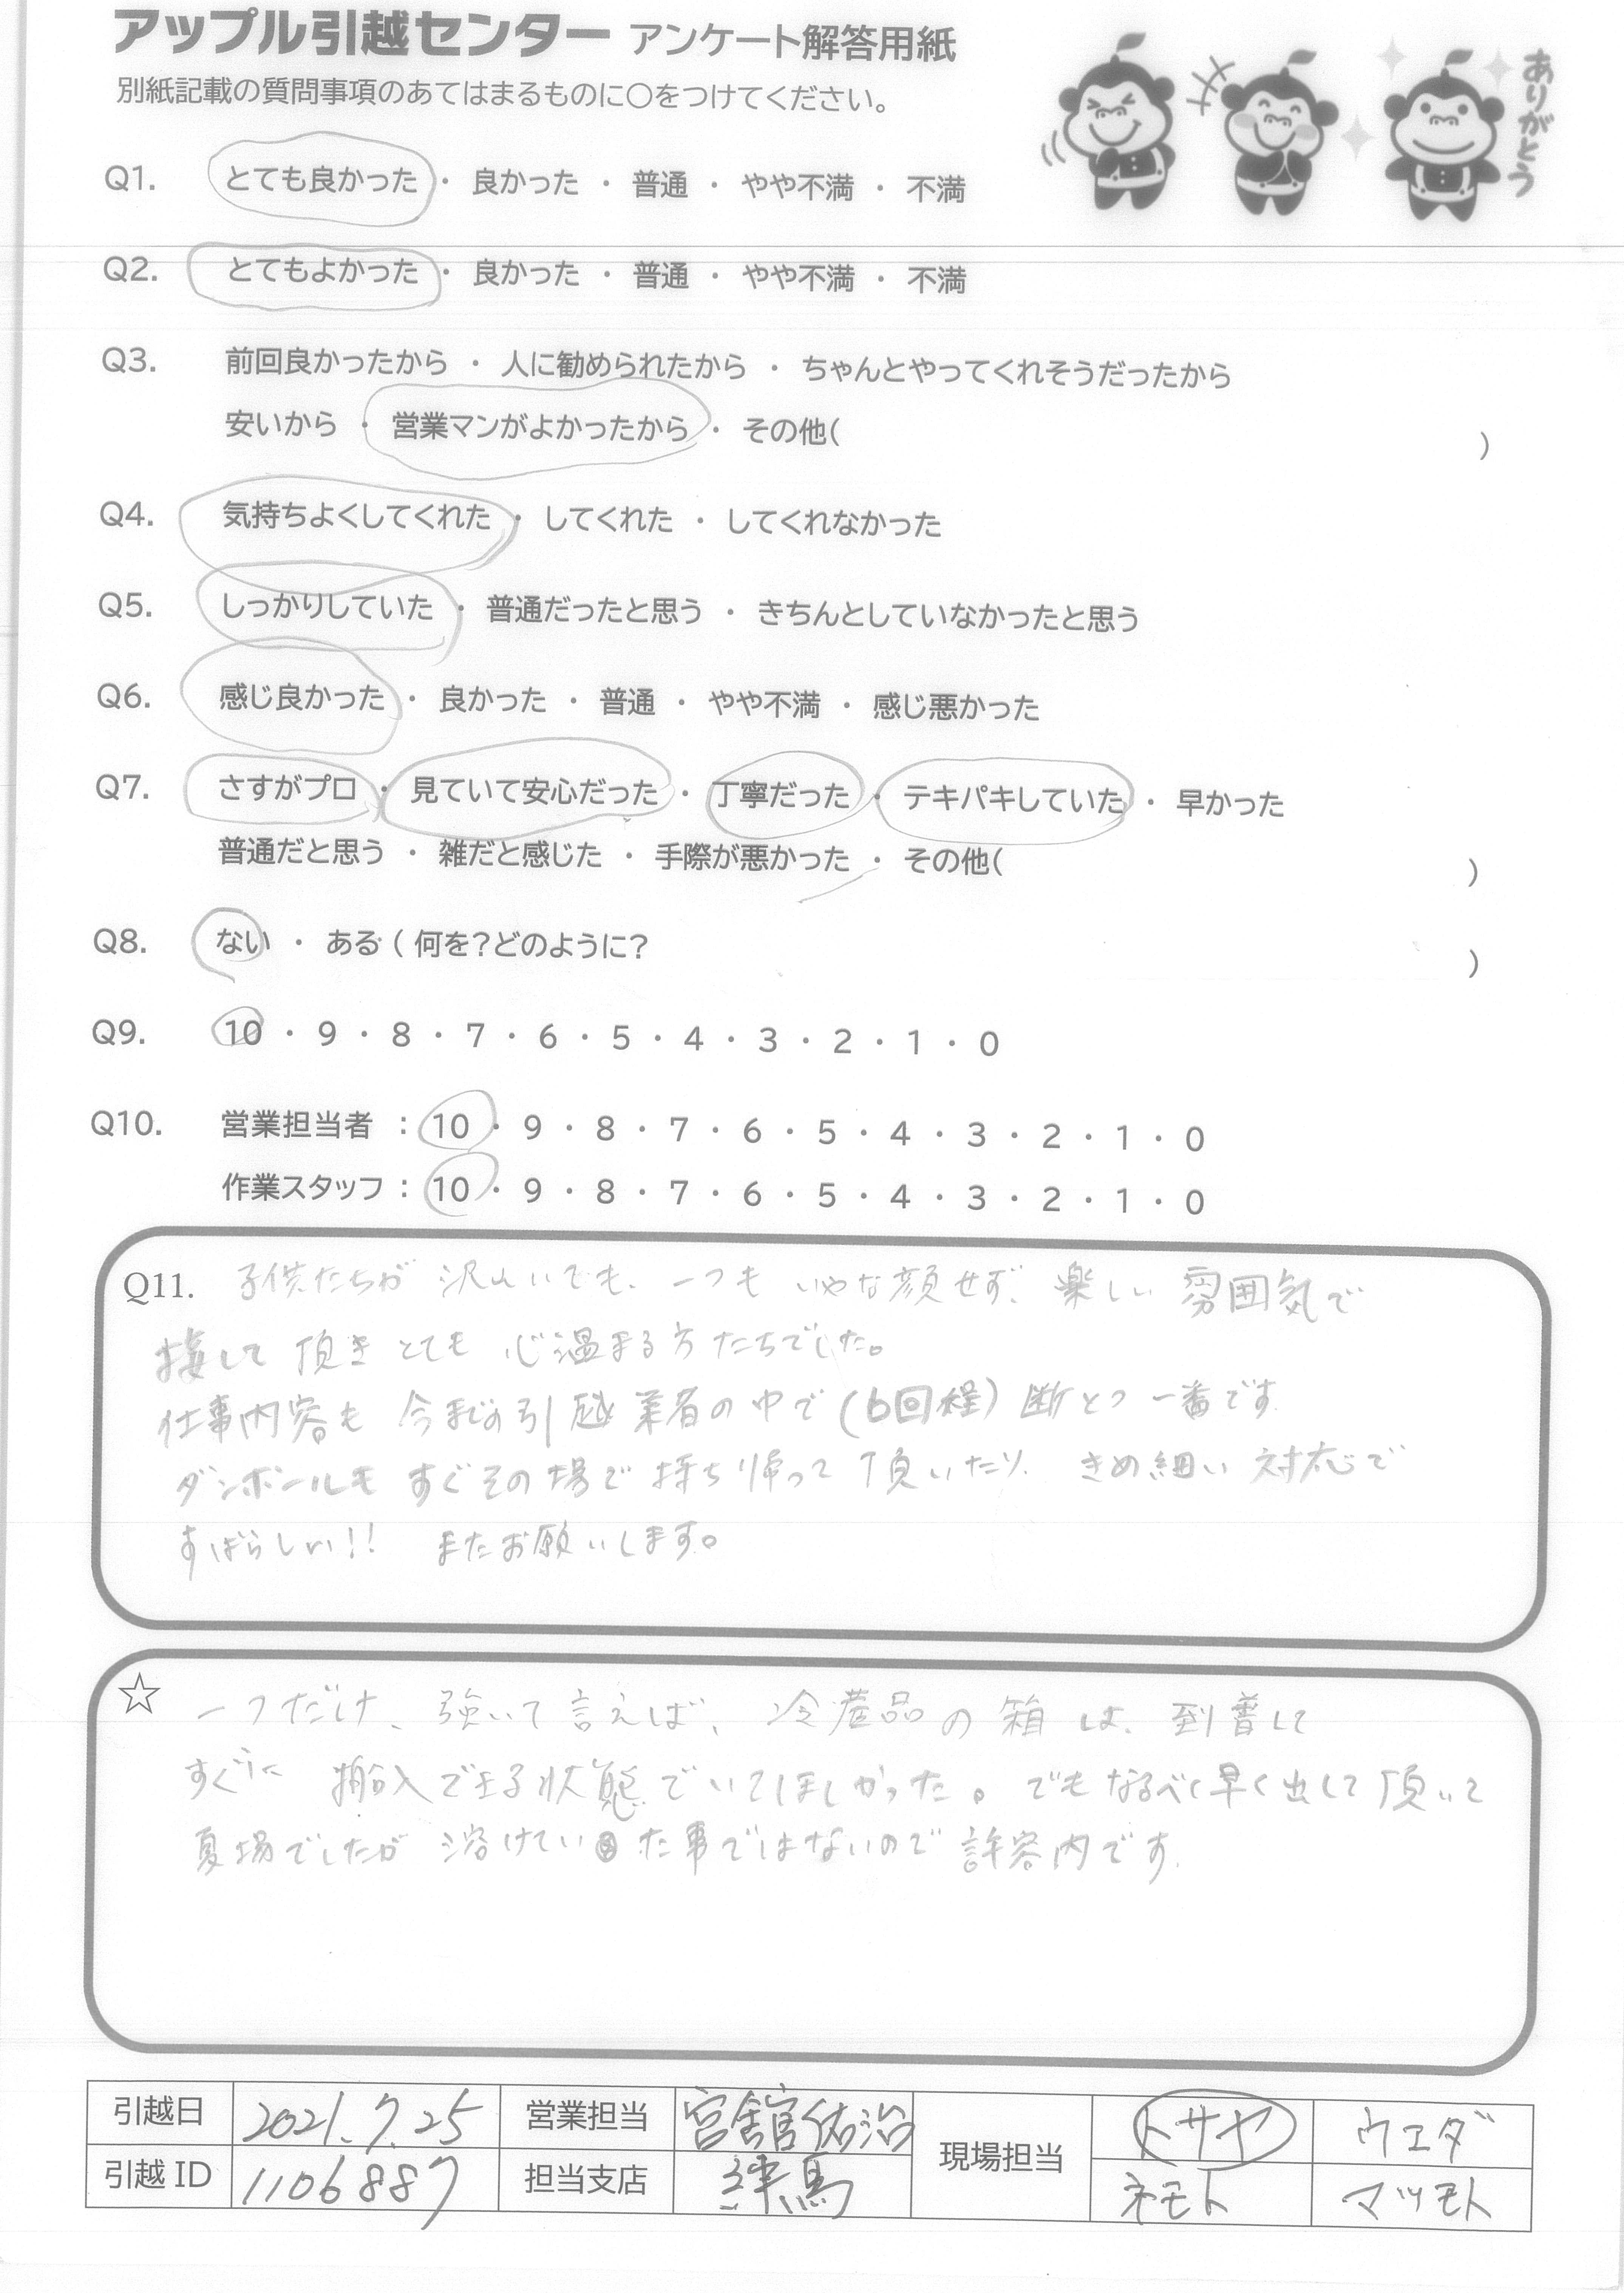 アップル引越センター アンケート解答用紙
別紙記載の質問事項のあてはまるものに〇をつけてください。
ありがとう
Q1. とても良かった ・ 良かった ・ 普通 ・ やや不満 ・ 不満
Q2. とてもよかった ・ 良かった ・ 普通 ・ やや不満 ・ 不満
Q3. 前回良かったから ・ 人に勧められたから ・ ちゃんとやってくれそうだったから
安いから ・ 営業マンがよかったから ・ その他( )
Q4. 気持ちよくしてくれた ・ してくれた ・ してくれなかった
Q5. しっかりしていた ・ 普通だったと思う ・ きちんとしていなかったと思う
Q6. 感じ良かった ・ 良かった ・ 普通 ・ やや不満 ・ 感じ悪かった
Q7. さすがプロ ・ 見ていて安心だった ・ 丁寧だった ・ テキパキしていた ・ 早かった
普通だと思う ・ 雑だと感じた ・ 手際が悪かった ・ その他( )
Q8. ない ・ ある ( 何を?どのように? )
Q9. 10 ・ 9 ・ 8 ・ 7 ・ 6 ・ 5 ・ 4 ・ 3 ・ 2 ・ 1 ・ 0
Q10. 営業担当者 : 10 ・ 9 ・ 8 ・ 7 ・ 6 ・ 5 ・ 4 ・ 3 ・ 2 ・ 1 ・ 0
作業スタッフ : 10 ・ 9 ・ 8 ・ 7 ・ 6 ・ 5 ・ 4 ・ 3 ・ 2 ・ 1 ・ 0
Q11. 子供たちが 沢山いでも、一つも いやな顔せず、楽しい 雰囲気で
接して 頂き とても 心温まる方たちでした。
仕事内容も 今までの引越業者の中で(6回程)断とつ 一番です
ダンボールも すぐその場で 持ち帰って 頂いたり、きめ細い 対応で
すばらしい!! またお願いします。
☆ 一つだけ、強いて言えば、冷蔵品の箱は、到着して
すぐに 搬入できる状態でいてほしかった。でもなるべく早く出して頂いて
夏場でしたが 溶けていた事ではないので 許容内です。
引越日 2021.7.25 営業担当 宮舘佑治 現場担当 トサヤ ウエダ
引越ID 1106887 担当支店 練馬 ネモト マツモト